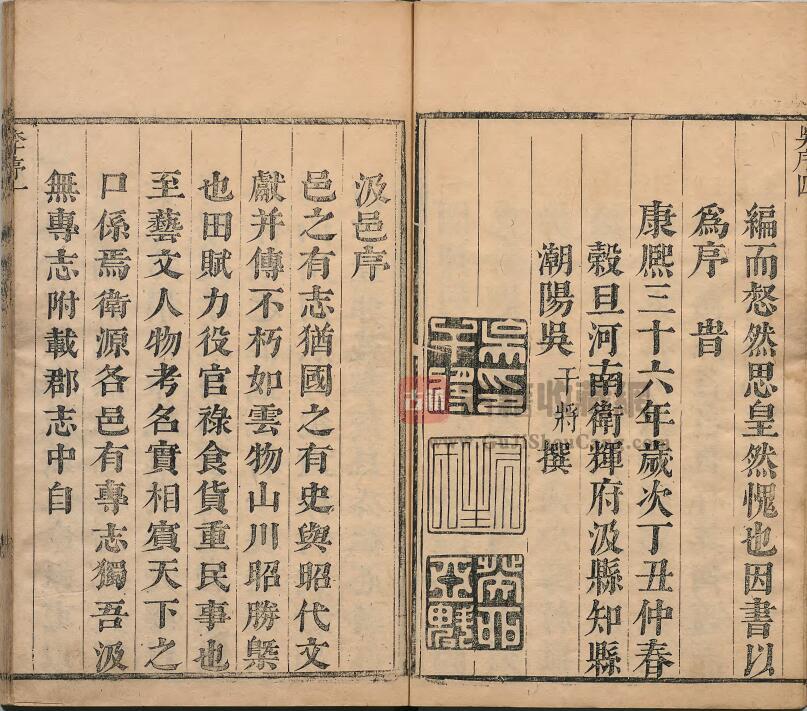 吳序四
編而惄然思皇然愧也因書以
爲序旹
康熙三十六年歲次丁丑仲春
穀旦河南衛輝府汲縣知縣
潮陽吳干將撰
汲邑序
邑之有志猶國之有史與昭代文
獻并傳不朽如雲物山川昭勝槩
也田賦力役官祿食貨重民事也
至藝文人物考名實相賓天下之
口係焉衛源各邑有專志獨吾汲
無專志附載郡志中自
李序一
www.GuJiShouCang.com